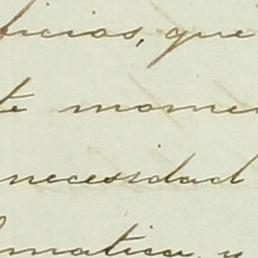 ficias, que
te momen
necesidad
lmatica, y